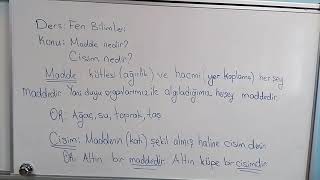 Ders: Fen Bilimleri
Konu: Madde nedir?
Cisim nedir?
Madde kütlesi (ağırlık) ve hacmi yer kaplama) herşey
maddedir. Yani duyu organlarımız ile algıladığımız herşey maddedir.
ÖR: Ağaç, su, toprak, taş
Cisim: Maddenin (katı) şekil almış haline cisim denir
ÖR: Altın bir maddedir. Altın küpe bir cisimdir.